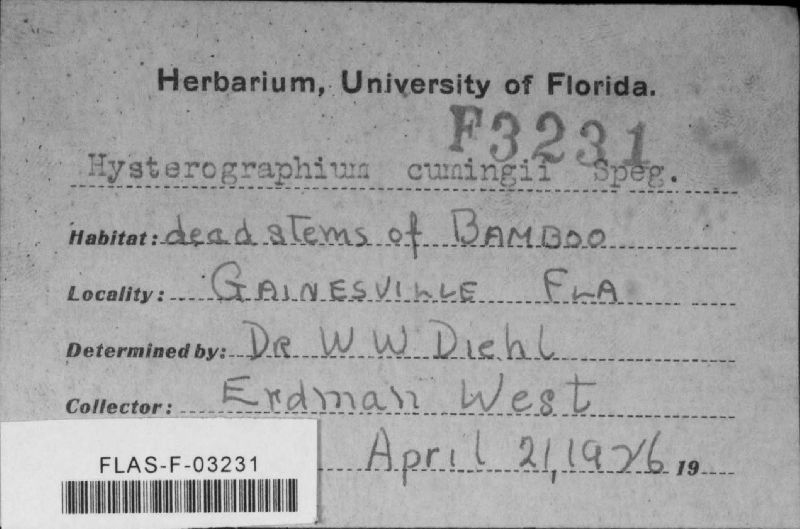 Herbarium, University of Florida.
F3231
Hysterographium cumingii Speg.
Habitat: dead stems of BAMBOO
Locality: GAINESVILLE FLA
Determined by: DR W W Diehl
Collector: Erdman West
April 21, 1926 19
FLAS-F-03231